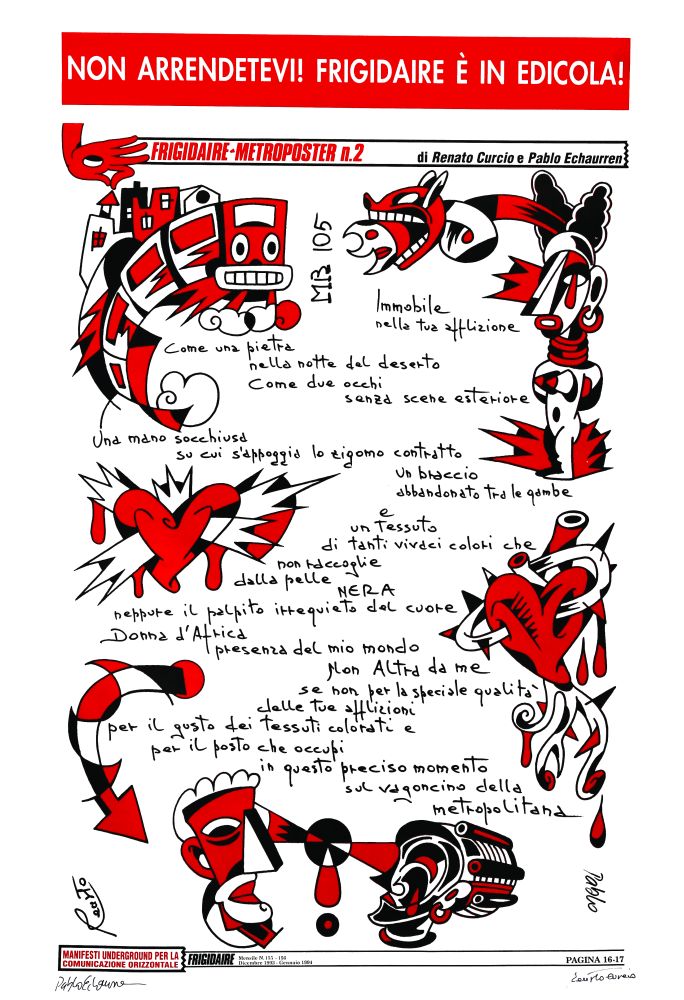 NON ARRENDETEVI! FRIGIDAIRE È IN EDICOLA!
FRIGIDAIRE-METROPOSTER n.2
di Renato Curcio e Pablo Echaurren
MB 105
Immobile
nella tua afflizione
Come una pietra
nella notte del deserto
Come due occhi
senza scene esteriore
Una mano socchiusa
su cui s'appoggia lo zigomo contratto
un braccio
abbandonato tra le gambe
e
un tessuto
di tanti vivaci colori che
non raccoglie
dalla pelle
NERA
neppure il palpito irrequieto del cuore
Donna d'Africa
presenza del mio mondo
Non Altra da me
se non per la speciale qualità
delle tue afflizioni
per il gusto dei tessuti colorati e
per il posto che occupi
in questo preciso momento
sul vagoncino della
metropolitana
Renato
Pablo
MANIFESTI UNDERGROUND PER LA
COMUNICAZIONE ORIZZONTALE
FRIGIDAIRE
Mensile N. 155 - 156
Dicembre 1993 - Gennaio 1994
PAGINA 16-17
Pablo Echaurren
Renato Curcio